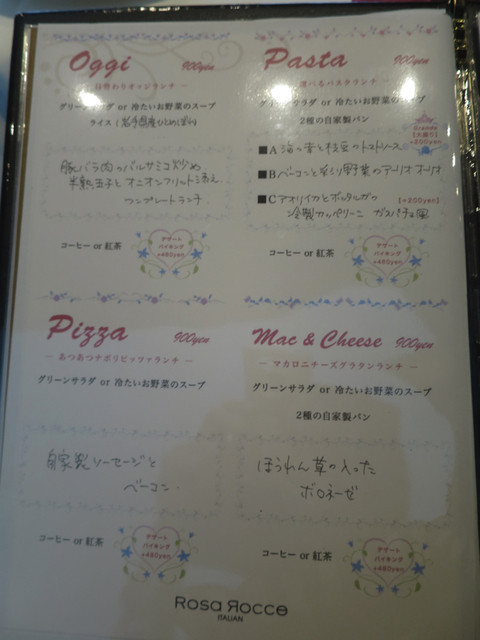 Oggi 900yen
日替わりオッジランチ
グリーンサラダ or 冷たいお野菜のスープ
ライス(岩手県産ひとめぼれ)
豚バラ肉のバルサミコ炒め
半熟玉子とオニオンフリット添え
ワンプレートランチ
コーヒー or 紅茶
デザート
バイキング
+480yen
Pasta 900yen
選べるパスタランチ
グリーンサラダ or 冷たいお野菜のスープ
2種の自家製パン
Grande
(大盛り)
+200yen
■A 海の幸と枝豆のトマトソース
■B ベーコンと彩り野菜のアーリオオーリオ
■C アオリイカとボッタルガの [+200yen]
冷製カッペリーニ ガスパチョ風
コーヒー or 紅茶
デザート
バイキング
+480yen
Pizza 900yen
― あつあつナポリピッツァランチ ―
グリーンサラダ or 冷たいお野菜のスープ
自家製ソーセージと
ベーコン
コーヒー or 紅茶
デザート
バイキング
+480yen
Mac & Cheese 900yen
― マカロニチーズグラタンランチ ―
グリーンサラダ or 冷たいお野菜のスープ
2種の自家製パン
ほうれん草の入った
ボロネーゼ
コーヒー or 紅茶
デザート
バイキング
+480yen
Rosa Rocco
ITALIAN